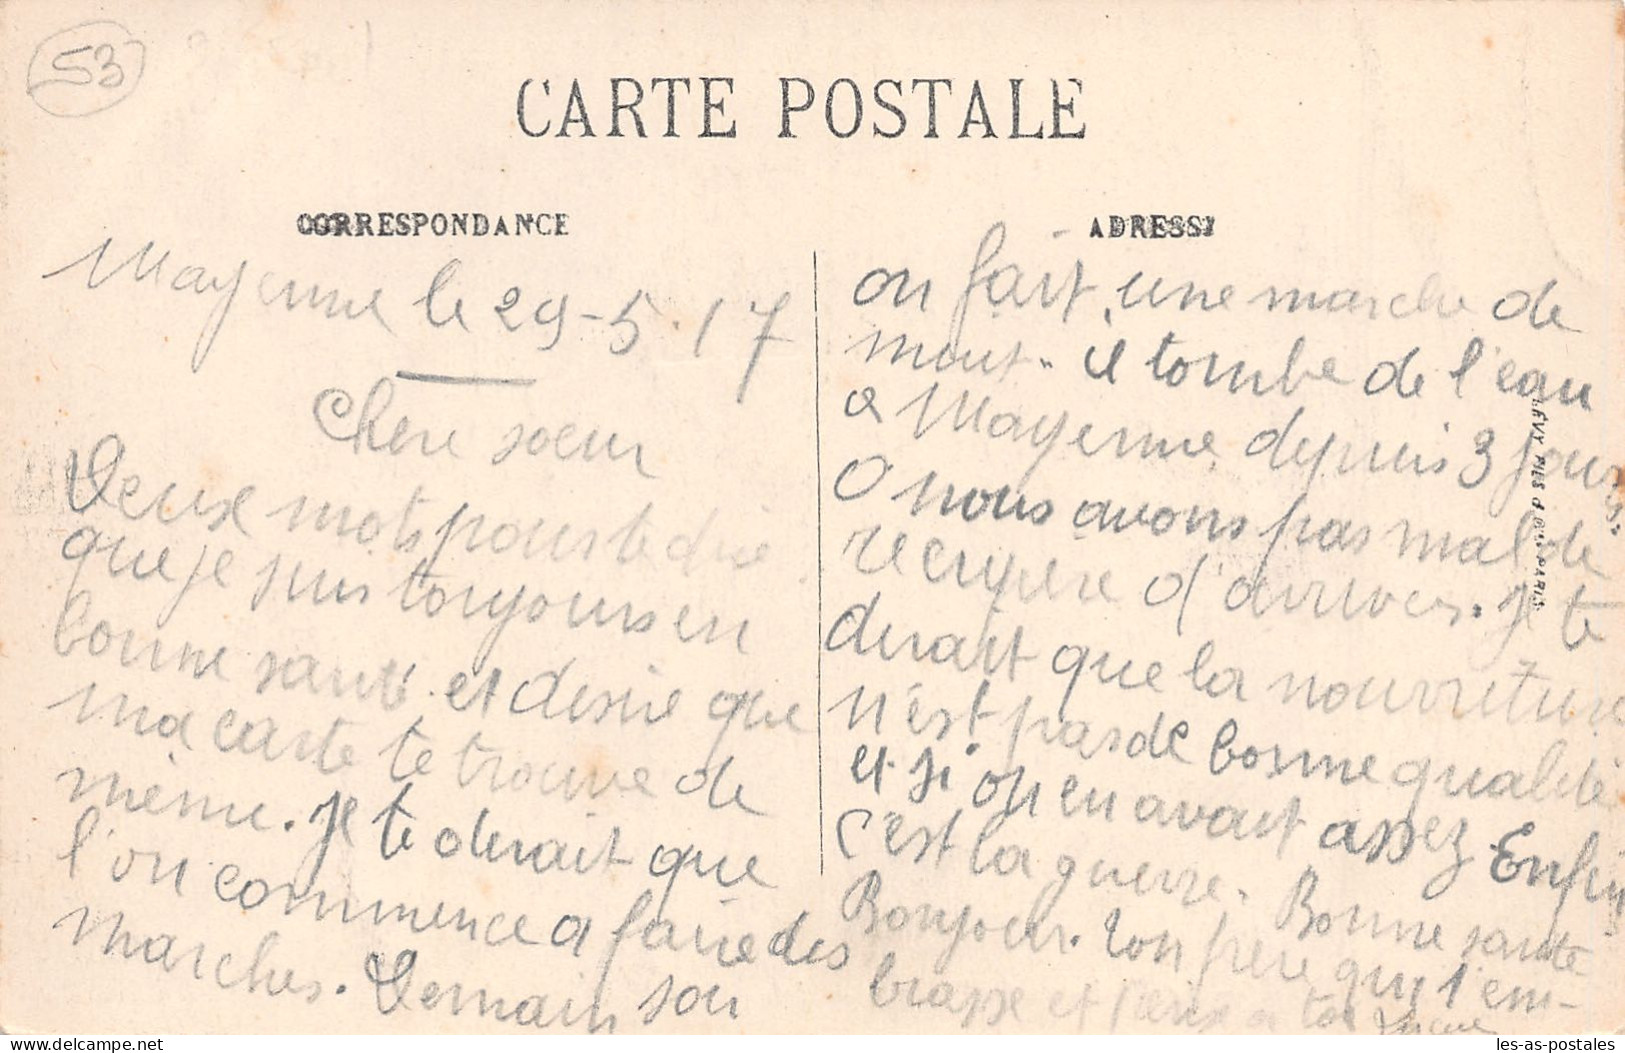 53
CARTE POSTALE
CORRESPONDANCE
ADRESSE
Mayenne le 29-5-17
Chere soeur
Deux mots pour te dire
que je suis toujours en
bonne santé et desire que
ma carte te trouve de
même. Je te dirait que
l'on commence a faire des
marches. Demain soir
on fait une marche de
nuit. il tombe de l'eau
a Mayenne depuis 3 jours.
O nous avons pas mal de
recupere d'arrives. Je te
dirait que la nourriture
n'est pas de bonne qualité
et si on en avait assez Enfin
c'est la guerre. Bonne sante
Bonjour. Ton frere qui t'em-
brasse et pense a toi
LÉVY FILS & Cie PARIS
les-as-postales
https://www.delcampe.net